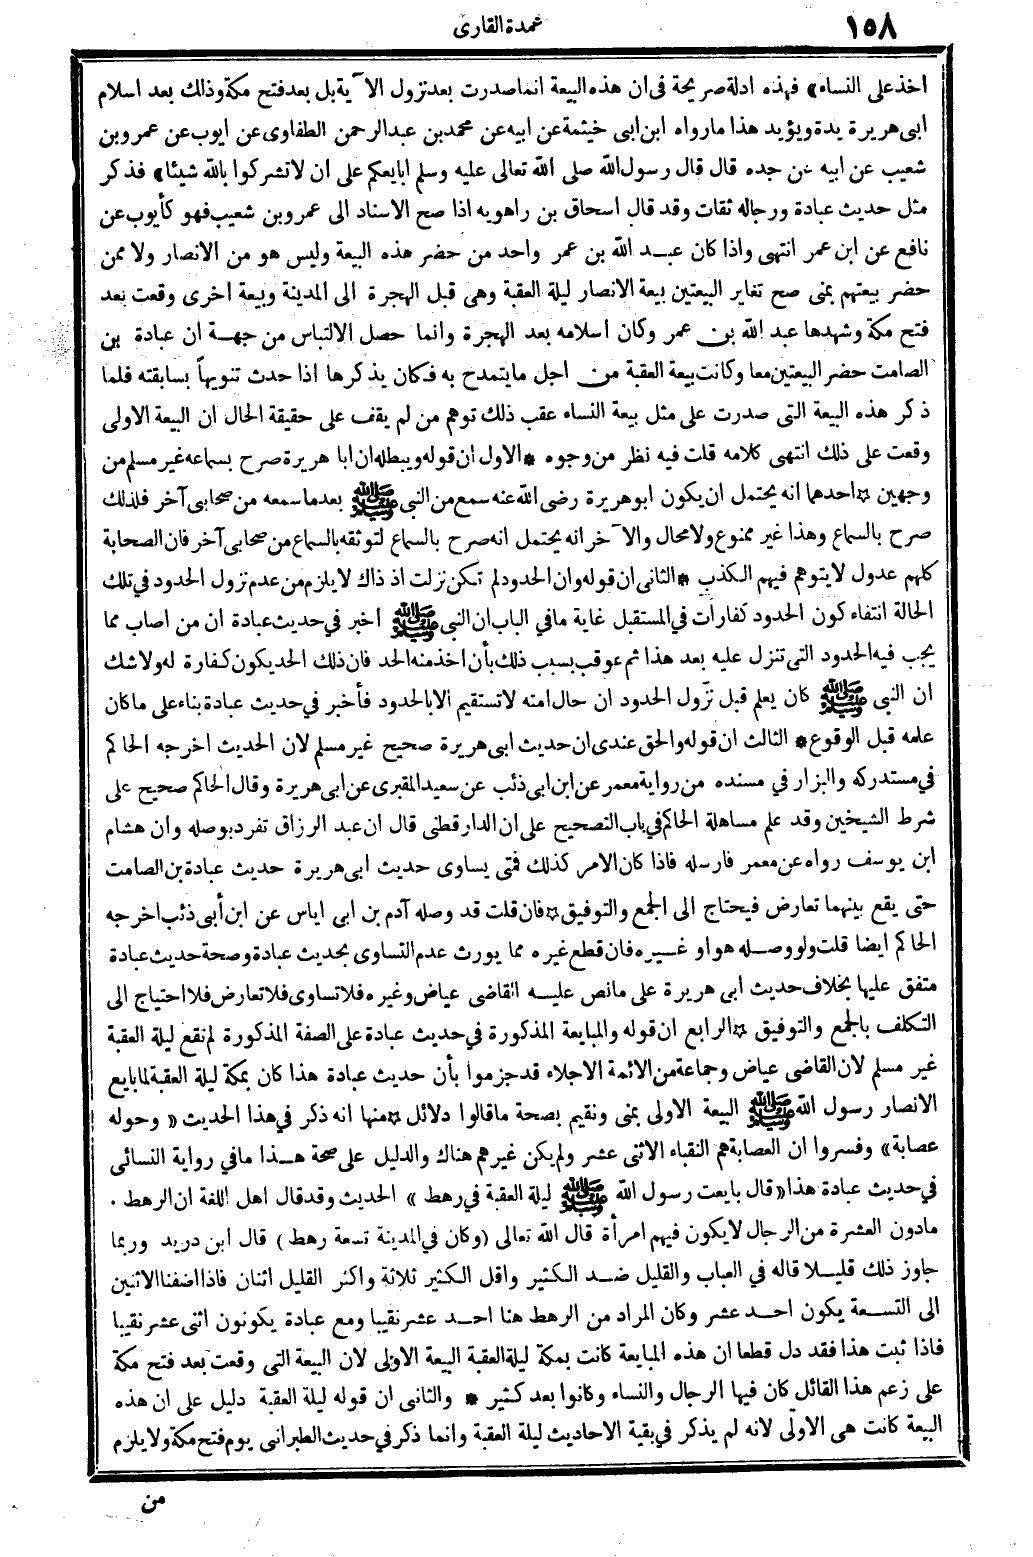 ١٥٨
عمدة القارى
اخذ على النساء» فهذه ادلة صريحة فى ان هذه البيعة انما صدرت بعد نزول الآية بل بعد فتح مكة وذلك بعد اسلام
ابى هريرة بمدة ويؤيد هذا ما رواه ابن ابى خيثمة عن ابيه عن محمد بن عبد الرحمن الطفاوى عن ايوب عن عمرو بن
شعيب عن ابيه عن جده قال قال رسول الله صلى الله تعالى عليه وسلم ابايعكم على ان لا تشركوا بالله شيئا» فذكر
مثل حديث عبادة ورجاله ثقات وقد قال اسحاق بن راهويه اذا صح الاسناد الى عمرو بن شعيب فهو كأيوب عن
نافع عن ابن عمر انتهى واذا كان عبد الله بن عمر واحد من حضر هذه البيعة وليس هو من الانصار ولا ممن
حضر بيعتهم بمنى صح تغاير البيعتين بيعة الانصار ليلة العقبة وهى قبل الهجرة الى المدينة وبيعة اخرى وقعت بعد
فتح مكة وشهدها عبد الله بن عمر وكان اسلامه بعد الهجرة وانما حصل الالتباس من جهة ان عبادة بن
الصامت حضر البيعتين معا وكانت بيعة العقبة من اجل ما يتمدح به فكان يذكرها اذا حدث تنويهاً بسابقته فلما
ذكر هذه البيعة التى صدرت على مثل بيعة النساء عقب ذلك توهم من لم يقف على حقيقة الحال ان البيعة الاولى
وقعت على ذلك انتهى كلامه قلت فيه نظر من وجوه * الاول ان قوله ويبطله ان ابا هريرة صرح بسماعه غير مسلم من
وجهين * احدها انه يحتمل ان يكون ابو هريرة رضى الله عنه سمع من النبى ﷺ بعد ما سمعه من صحابى آخر فلذلك
صرح بالسماع وهذا غير ممنوع ولا محال والآخر انه يحتمل انه صرح بالسماع لتوثقه بالسماع من صحابى آخر فان الصحابة
كلهم عدول لا يتوهم فيهم الكذب * الثانى ان قوله وان الحدود لم تكن نزلت اذ ذاك لا يلزم من عدم نزول الحدود فى تلك
الحالة انتفاء كون الحدود كفارات فى المستقبل غاية ما فى الباب ان النبى ﷺ اخبر فى حديث عبادة ان من اصاب مما
يجب فيه الحدود التى تنزل عليه بعد هذا ثم عوقب بسبب ذلك بأن اخذ منه الحد فان ذلك الحد يكون كفارة له ولا شك
ان النبى ﷺ كان يعلم قبل نزول الحدود ان حال امته لا تستقيم الا بالحدود فأخبر فى حديث عبادة بناء على ما كان
علمه قبل الوقوع * الثالث ان قوله والحق عندى ان حديث ابى هريرة صحيح غير مسلم لان الحديث اخرجه الحاكم
فى مستدركه والبزار فى مسنده من رواية معمر عن ابن ابى ذئب عن سعيد المقبرى عن ابى هريرة وقال الحاكم صحيح على
شرط الشيخين وقد علم مساهلة الحاكم فى باب التصحيح على ان الدار قطنى قال ان عبد الرزاق تفرد بوصله وان هشام
ابن يوسف رواه عن معمر فارسله فاذا كان الامر كذلك فمتى يساوى حديث ابى هريرة حديث عبادة بن الصامت
حتى يقع بينهما تعارض فيحتاج الى الجمع والتوفيق * فان قلت قد وصله آدم بن ابى اياس عن ابن أبى ذئب اخرجه
الحاكم ايضا قلت ولو وصله هو او غيره فان قطع غيره مما يورث عدم التساوى بحديث عبادة وصحة حديث عبادة
متفق عليها بخلاف حديث ابى هريرة على ما نص عليه القاضى عياض وغيره فلا تساوى فلا تعارض فلا احتياج الى
التكلف بالجمع والتوفيق * الرابع ان قوله والمبايعة المذكورة فى حديث عبادة على الصفة المذكورة لم تقع ليلة العقبة
غير مسلم لان القاضى عياض وجماعة من الائمة الاجلاء قد جزموا بأن حديث عبادة هذا كان بمكة ليلة العقبة لما بايع
الانصار رسول الله ﷺ البيعة الاولى بمنى ونقيم بصحة ما قالوا دلائل * منها انه ذكر فى هذا الحديث « وحوله
عصابة» وفسروا ان العصابة هم النقباء الاثنى عشر ولم يكن غيرهم هناك والدليل على صحة هذا ما فى رواية النسائى
فى حديث عبادة هذا «قال بايعت رسول الله ﷺ ليلة العقبة فى رهط » الحديث وقد قال اهل اللغة ان الرهط .
مادون العشرة من الرجال لا يكون فيهم امرأة قال الله تعالى (وكان فى المدينة تسعة رهط) قال ابن دريد وربما
جاوز ذلك قليلا قاله فى العباب والقليل ضد الكثير واقل الكثير ثلاثة واكثر القليل اثنان فاذا اضفنا الاثنين
الى التسعة يكون احد عشر وكان المراد من الرهط هنا احد عشر نقيبا ومع عبادة يكونون اثنى عشر نقيبا
فاذا ثبت هذا فقد دل قطعا ان هذه المبايعة كانت بمكة ليلة العقبة البيعة الاولى لان البيعة التى وقعت بعد فتح مكة
على زعم هذا القائل كان فيها الرجال والنساء وكانوا بعد كثير * والثانى ان قوله ليلة العقبة دليل على ان هذه
البيعة كانت هى الاولى لانه لم يذكر فى بقية الاحاديث ليلة العقبة وانما ذكر فى حديث الطبرانى يوم فتح مكة ولا يلزم
من